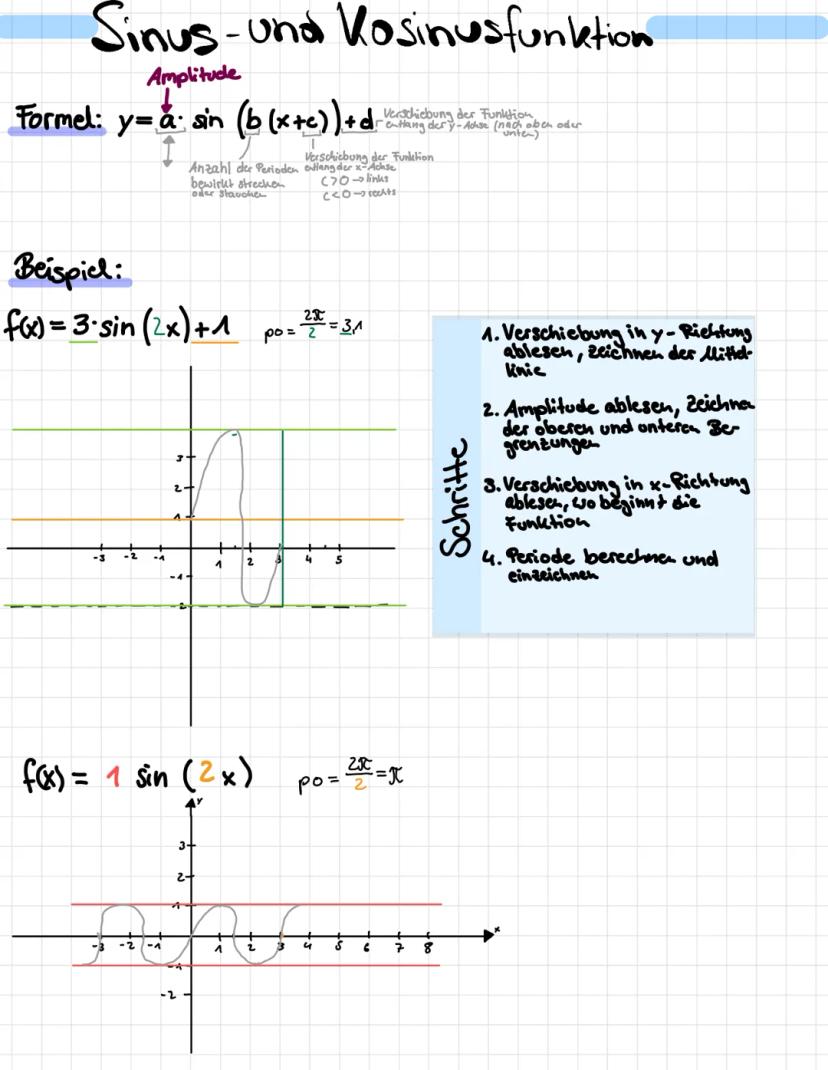 Sinus-und Kosinusfunktion
Amplitude
Formel: y= a· sin (b(x+c))+d
Verschiebung der Funktion
entlang der y-Achse (nach oben oder
unten)
Anzahl der Perioden
bewirkt strecken
oder stauchen
Verschiebung der Funktion
entlang der x-Achse
c>0 → links
c<0 → rechts
Beispiel:
f(x) = 3·sin (2x)+1
po = 2π/2 = 3,1
3
2
1
-3 -2 -1 1 2 3 4 5
-1
-2
Schritte
1. Verschiebung in y-Richtung
ablesen, zeichnen der Mittel-
linie
2. Amplitude ablesen, Zeichnen
der oberen und unteren Be-
grenzungen
3. Verschiebung in x-Richtung
ablesen, wo beginnt die
Funktion
4. Periode berechnen und
einzeichnen
f(x) = 1 sin (2x)
po = 2π/2 = π
y
3
2
1
-3 -2 -1 1 2 3 4 5 6 7 8
x
-1
-2